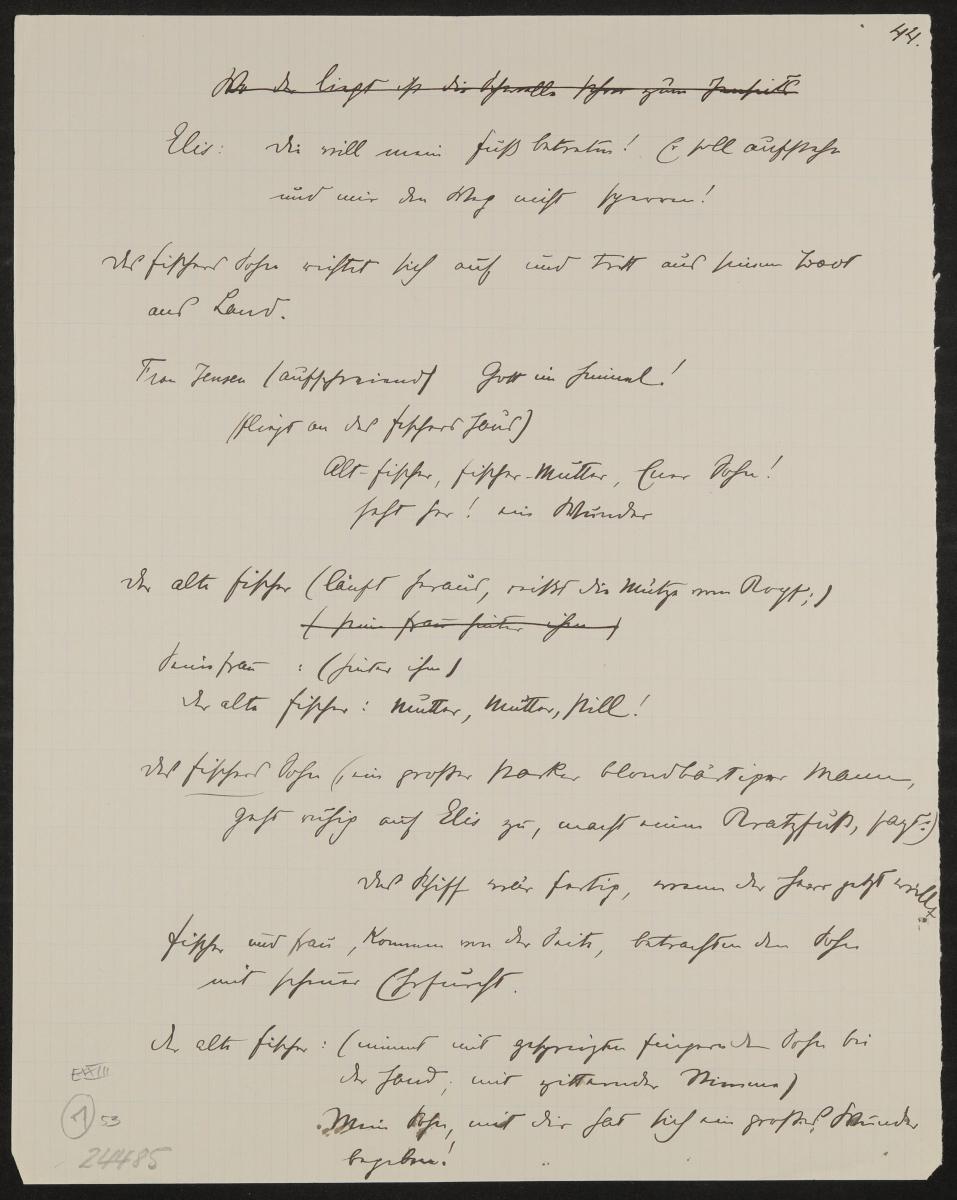 44.
Wo der liegt ist die Schwelle schon zum Jenseits
Elis: die will mein Fuß betreten! Er soll aufstehn
und mir den Weg nicht sperren!
des Fischers Sohn richtet sich auf und tritt aus seinem Boot
ans Land.
Frau Jensen (aufschreiend) Gott im Himmel!
(fliegt an des Fischers Haus)
Alt-Fischer, Fischer-Mutter, Euer Sohn!
seht her! ein Wunder
der alte Fischer (läuft heraus, reißt die Mütze vom Kopf;)
(seine Frau hinter ihm)
Seine Frau : (hinter ihm)
der alte Fischer: Mutter, Mutter, still!
des Fischers Sohn (, ein großer starker blondbärtiger Mann,
geht ruhig auf Elis zu, macht einen Kratzfuß, sagt:)
das Schiff wär fertig, wenn der Herr jetzt will
Fischer und Frau, kommen von der Seite, betrachten den Sohn
mit scheuer Ehrfurcht.
der alte Fischer: (nimmt mit gespreizten Fingern den Sohn bei
der Hand; mit zitternder Stimme)
Mein Sohn, mit dir hat sich ein großes Wunder
begeben!
EVIII
1 53
24485